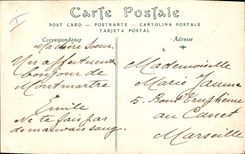 Carte Postale
POST CARD - POSTKARTE - CARTOLINA POSTALE
TARJETA POSTAL
Correspondance
Adresse
Ma chère Soeur
Un affectueux
bonjour de
Montmartre
Emile
Ne te fais pas
de mauvais sang
Mademoiselle
Marie Jaume
5. Boulᵈ
au Canet
Marseille